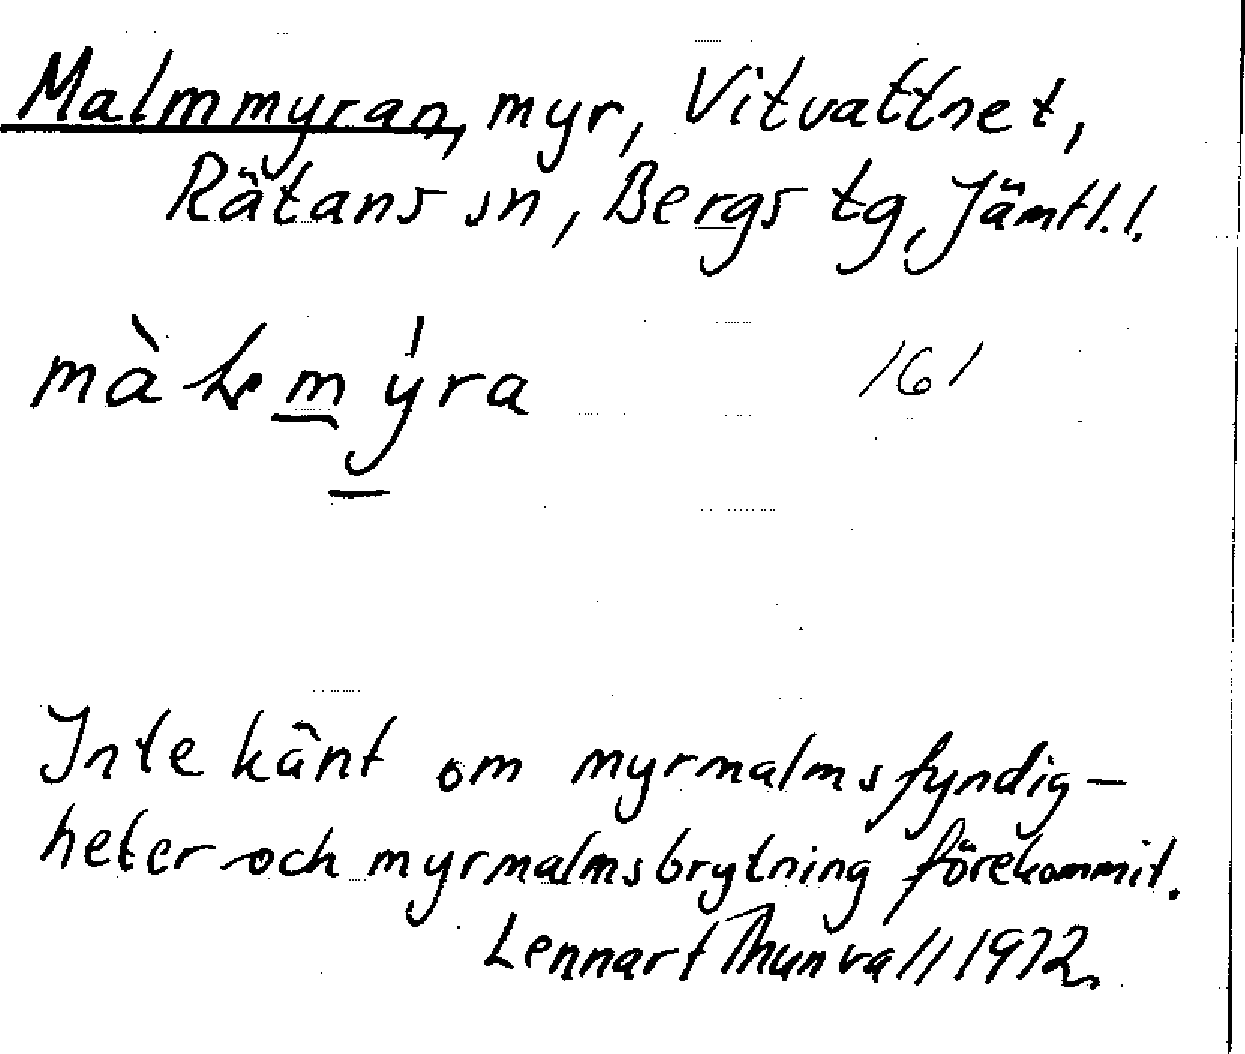 Malmmyran, myr, Vitvattnet,
Rätans sn, Bergs tg, Jämtl. l.
161
Inte känt om myrmalmsfyndig-
heter och myrmalmsbrytning förekommit.
Lennart Thunvall 1972.